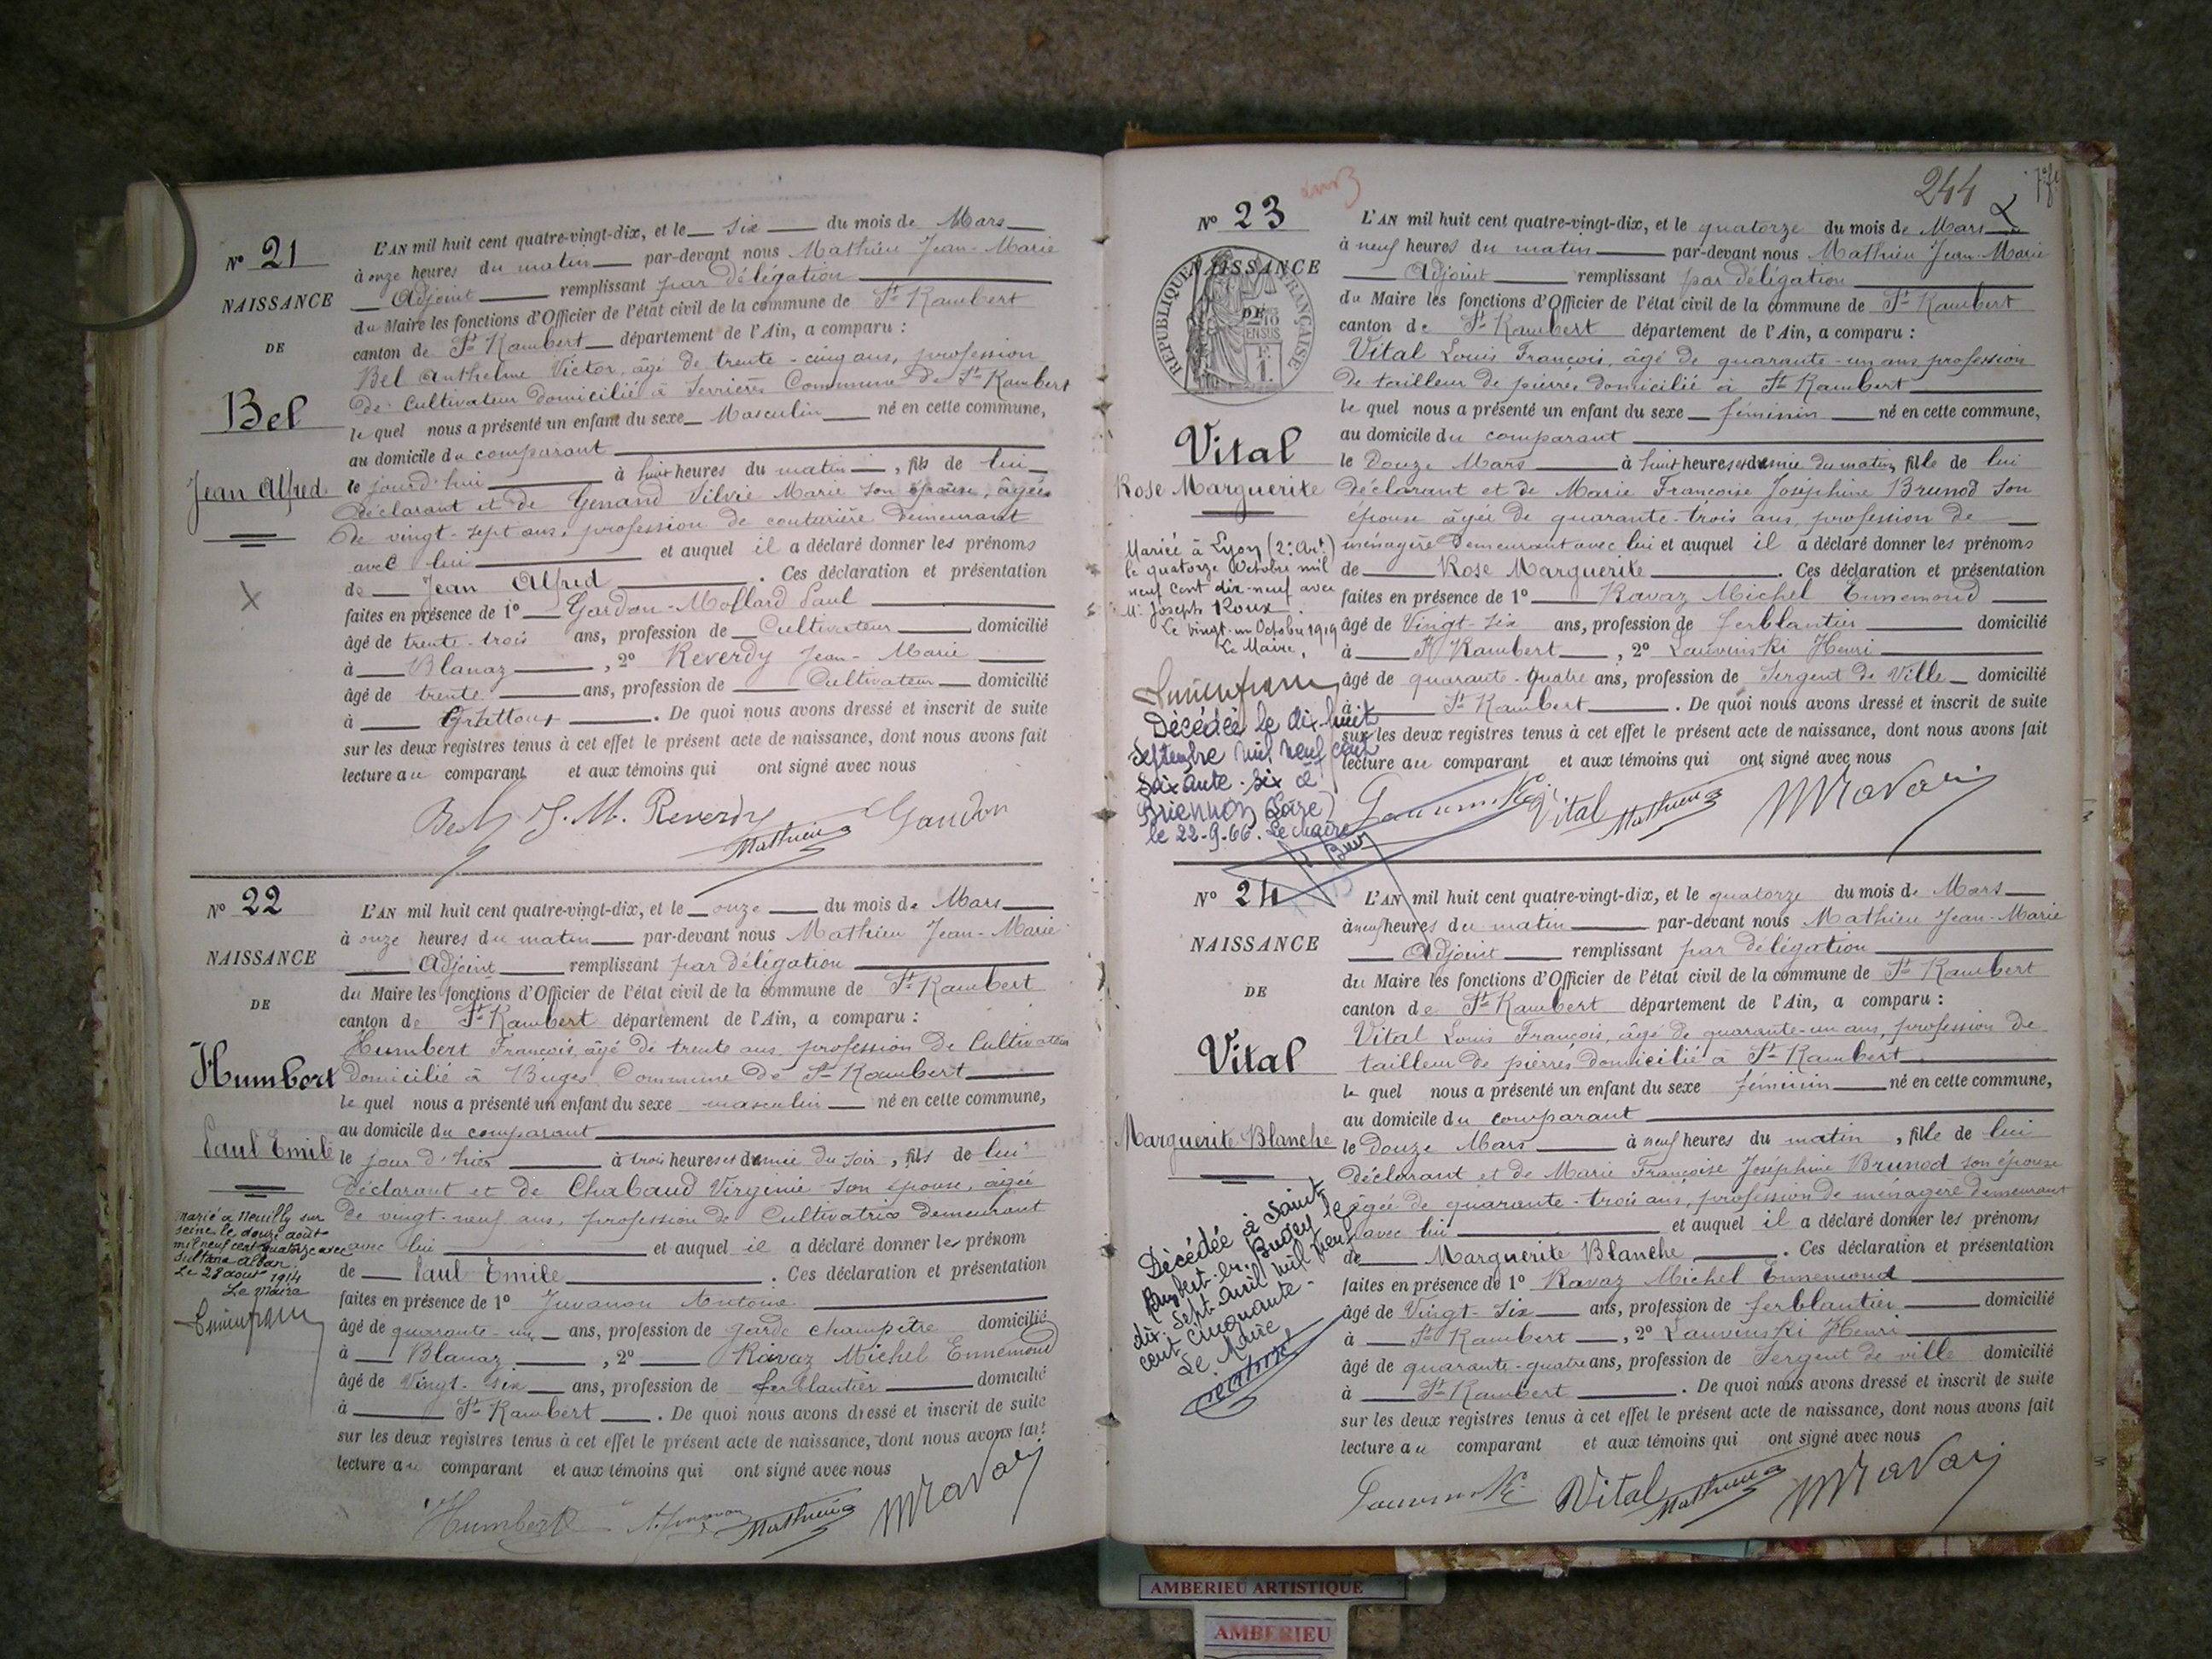 N° 21
NAISSANCE
DE
Bel
Jean Alfred
L'AN mil huit cent quatre-vingt-dix, et le six du mois de Mars
à onze heures du matin par-devant nous Mathieu Jean-Marie
Adjoint remplissant par délégation
du Maire les fonctions d'Officier de l'état civil de la commune de St Rambert
canton de St Rambert département de l'Ain, a comparu :
Bel Anthelme Victor, âgé de trente-cinq ans, profession
de Cultivateur domicilié à Serrières Commune de St Rambert
lequel nous a présenté un enfant du sexe Masculin né en cette commune,
au domicile du comparant
le jourd'hui à huit heures du matin, fils de lui
déclarant et de Genand Silvie Marie son épouse, âgée
de vingt-sept ans, profession de couturière demeurant
avec lui et auquel il a déclaré donner les prénoms
de Jean Alfred. Ces déclaration et présentation
faites en présence de 1° Gardon-Mollard Paul
âgé de trente-trois ans, profession de Cultivateur domicilié
à Blanaz, 2° Reverdy Jean-Marie
âgé de trente ans, profession de Cultivateur domicilié
à Grattoux. De quoi nous avons dressé et inscrit de suite
sur les deux registres tenus à cet effet le présent acte de naissance, dont nous avons fait
lecture au comparant et aux témoins qui ont signé avec nous
Bel J. M. Reverdy Mathieu Gardon
N° 22
NAISSANCE
DE
Humbert
Paul Emile
Marié à Neuilly sur
seine le douze août
mil neuf cent quatorze avec
Sultana Alban.
Le 28 août 1914
Le Maire
L'AN mil huit cent quatre-vingt-dix, et le onze du mois de Mars
à onze heures du matin par-devant nous Mathieu Jean-Marie
Adjoint remplissant par délégation
du Maire les fonctions d'Officier de l'état civil de la commune de St Rambert
canton de St Rambert département de l'Ain, a comparu :
Humbert François, âgé de trente ans, profession de Cultivateur
domicilié à Buges Commune de St Rambert
lequel nous a présenté un enfant du sexe masculin né en cette commune,
au domicile du comparant
le jour d'hier à trois heures et demie du soir, fils de lui
déclarant et de Chabaud Virginie son épouse, âgée
de vingt-neuf ans, profession de Cultivatrice demeurant
avec lui et auquel il a déclaré donner les prénom
de Paul Emile. Ces déclaration et présentation
faites en présence de 1° Juvanon Antoine
âgé de quarante-un ans, profession de garde champêtre domicilié
à Blanaz, 2° Ravaz Michel Ennemond
âgé de Vingt-six ans, profession de ferblantier domicilié
à St Rambert. De quoi nous avons dressé et inscrit de suite
sur les deux registres tenus à cet effet le présent acte de naissance, dont nous avons fait
lecture au comparant et aux témoins qui ont signé avec nous
Humbert A. Juvanon Mathieu M Ravaz
244
N° 23
NAISSANCE
DE
REPUBLIQUE FRANÇAISE
Vital
Rose Marguerite
Mariée à Lyon (2e Art)
le quatorze Octobre mil
neuf cent dix-neuf avec
Mr Joseph Roux.
Le vingt-un Octobre 1919
Le Maire,
Décédée le dix-huit
septembre mil neuf cent
soixante-six à
Briennon (Loire)
le 22-9-66. Le Maire
L'AN mil huit cent quatre-vingt-dix, et le quatorze du mois de Mars
à neuf heures du matin par-devant nous Mathieu Jean-Marie
Adjoint remplissant par délégation
du Maire les fonctions d'Officier de l'état civil de la commune de St Rambert
canton de St Rambert département de l'Ain, a comparu :
Vital Louis François, âgé de quarante-un ans profession
de tailleur de pierres domicilié à St Rambert
lequel nous a présenté un enfant du sexe féminin né en cette commune,
au domicile du comparant
le Douze Mars à huit heures et demie du matin, fille de lui
déclarant et de Marie Françoise Joséphine Brunod son
épouse âgée de quarante-trois ans, profession de
ménagère demeurant avec lui et auquel il a déclaré donner les prénoms
de Rose Marguerite. Ces déclaration et présentation
faites en présence de 1° Ravaz Michel Ennemond
âgé de Vingt-six ans, profession de ferblantier domicilié
à St Rambert, 2° Lauvinski Henri
âgé de quarante-quatre ans, profession de Sergent de Ville domicilié
à St Rambert. De quoi nous avons dressé et inscrit de suite
sur les deux registres tenus à cet effet le présent acte de naissance, dont nous avons fait
lecture au comparant et aux témoins qui ont signé avec nous
Vital Mathieu M Ravaz
N° 24
NAISSANCE
DE
Vital
Marguerite Blanche
Décédée à Saint
Rambert-en-Bugey le
dix-sept avril mil neuf
cent cinquante-
Le Maire
L'AN mil huit cent quatre-vingt-dix, et le quatorze du mois de Mars
à neuf heures du matin par-devant nous Mathieu Jean-Marie
Adjoint remplissant par délégation
du Maire les fonctions d'Officier de l'état civil de la commune de St Rambert
canton de St Rambert département de l'Ain, a comparu :
Vital Louis François, âgé de quarante-un ans, profession de
tailleur de pierres domicilié à St Rambert
lequel nous a présenté un enfant du sexe féminin né en cette commune,
au domicile du comparant
le Douze Mars à neuf heures du matin, fille de lui
déclarant et de Marie Françoise Joséphine Brunod son épouse
âgée de quarante-trois ans, profession de ménagère demeurant
avec lui et auquel il a déclaré donner les prénoms
de Marguerite Blanche. Ces déclaration et présentation
faites en présence de 1° Ravaz Michel Ennemond
âgé de Vingt-six ans, profession de ferblantier domicilié
à St Rambert, 2° Lauvinski Henri
âgé de quarante-quatre ans, profession de Sergent de ville domicilié
à St Rambert. De quoi nous avons dressé et inscrit de suite
sur les deux registres tenus à cet effet le présent acte de naissance, dont nous avons fait
lecture au comparant et aux témoins qui ont signé avec nous
Vital Mathieu M Ravaz
AMBERIEU ARTISTIQUE
AMBERIEU